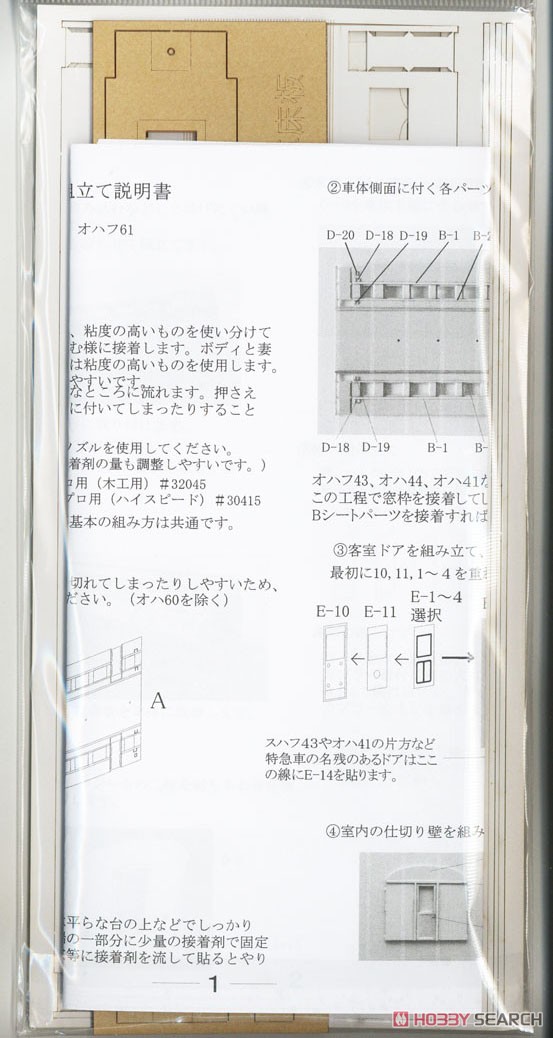 床板
組立て説明書
オハフ61
、粘度の高いものを使い分けて
む様に接着します。ボディと妻
は粘度の高いものを使用します。
やすいです。
なところに流れます。押さえ
に付いてしまったりすること
ノズルを使用してください。
着剤の量も調整しやすいです。）
ロ用（木工用）＃32045
プロ用（ハイスピード）＃30415
基本の組み方は共通です。
切れてしまったりしやすいため、
ださい。（オハ60を除く）
A
平らな台の上などでしっかり
の一部分に少量の接着剤で固定
等に接着剤を流して貼るとやり
②車体側面に付く各パーツ
D-20 D-18 D-19 B-1 B-2
D-18 D-19 B-1 B-
オハフ43、オハ44、オハ41な
この工程で窓枠を接着してし
Bシートパーツを接着すれば
③客室ドアを組み立て、
最初に10, 11, 1～4を重
E-10 E-11 E-1～4
選択
スハフ43やオハ41の片方など
特急車の名残のあるドアはここ
の線にE-14を貼ります。
④室内の仕切り壁を組み
1
HOBBY SEARCH